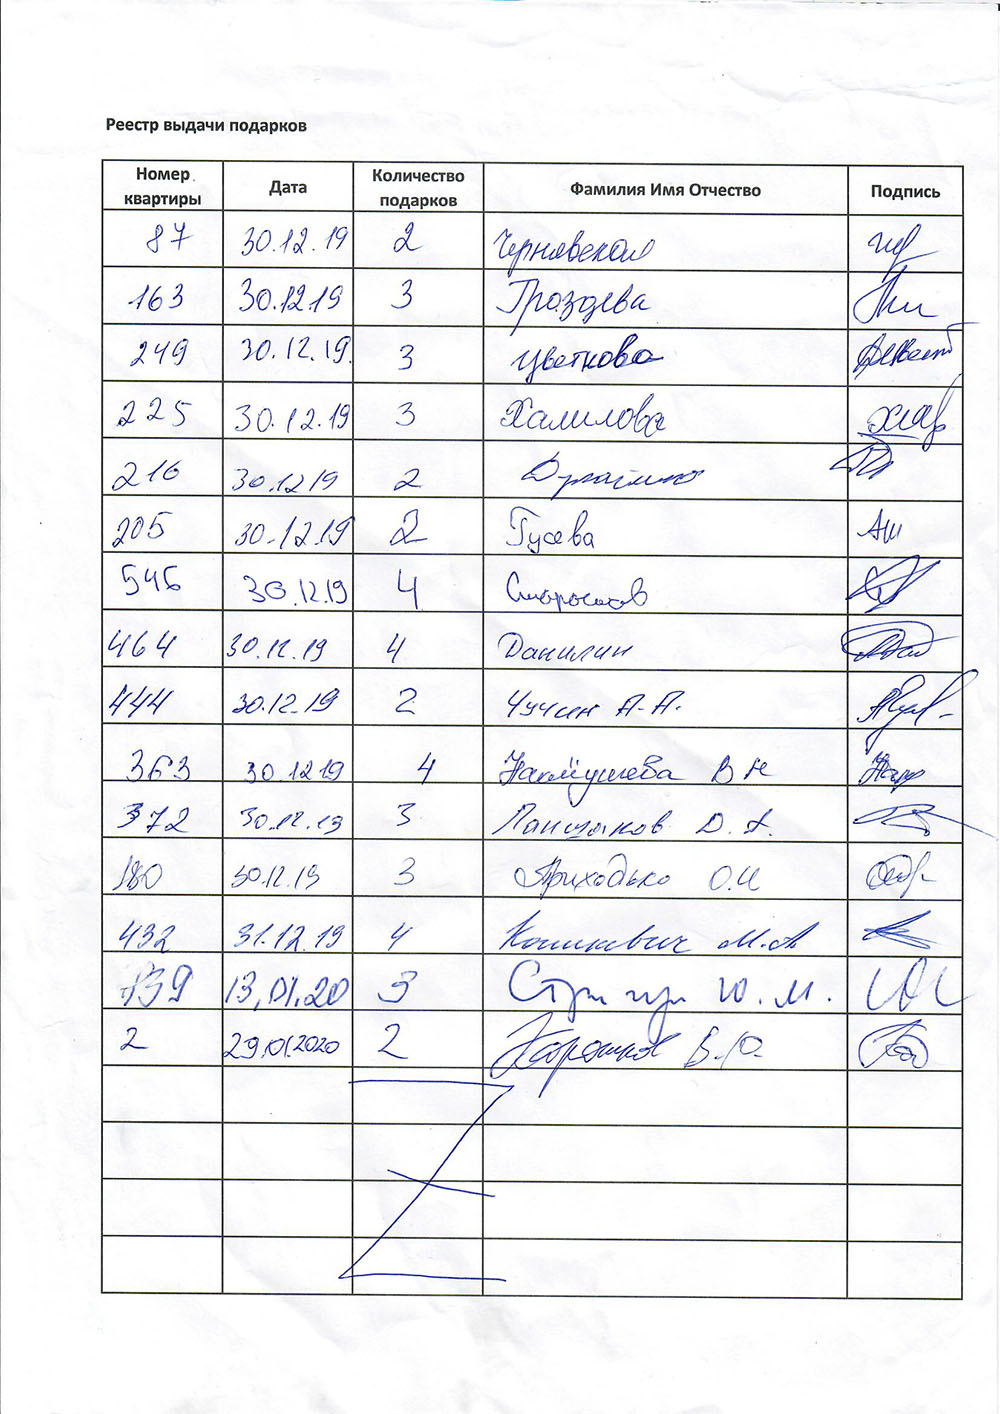 Реестр выдачи подарков
Номер квартиры Дата Количество подарков Фамилия Имя Отчество Подпись
87 30.12.19 2 Чернявская
163 30.12.19 3 Гроздева
249 30.12.19. 3 Цветкова
225 30.12.19 3 Халилова
216 30.12.19 2
205 30.12.19 2 Гусева
546 30.12.19 4
464 30.12.19 4 Данилин
444 30.12.19 2 Чучин А.А.
363 30.12.19 4 В Н
372 30.12.19 3 Д.А.
180 30.12.19 3 Приходько О.И
432 31.12.19 4 М.А
139 13,01.20 3 Ю.М.
2 29.01.2020 2 В.Ю.